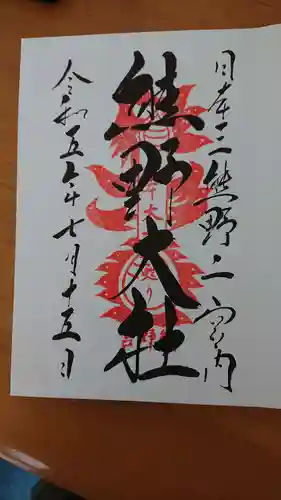 日本三熊野之宮内
熊野大社
令和五年七月十五日